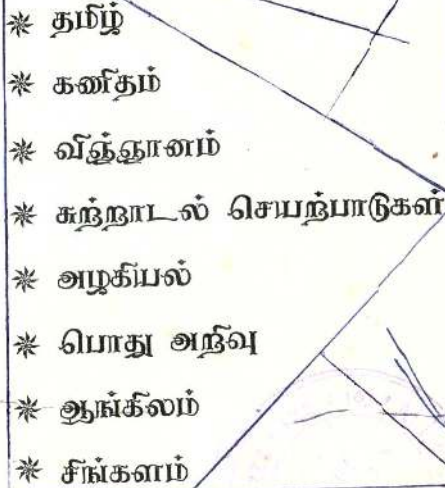 * தமிழ்
* கணிதம்
* விஞ்ஞானம்
* சுற்றாடல் செயற்பாடுகள்
* அழகியல்
* பொது அறிவு
* ஆங்கிலம்
* சிங்களம்